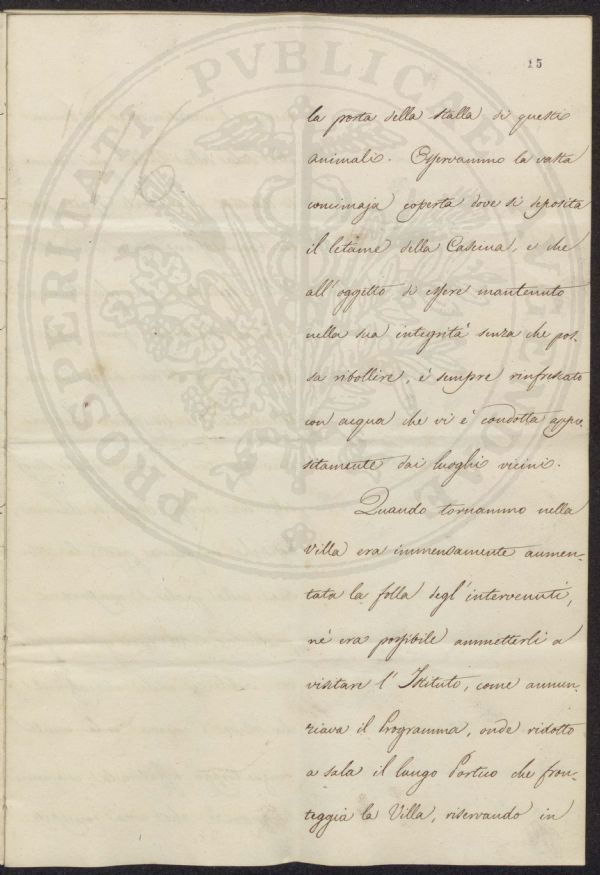 15
la porta della stalla di questi
animali. Osservammo la vasta
concimaja coperta dove si deposita
il letame della Cascina, e che
all'oggetto di essere mantenuto
nella sua integrità senza che pos-
sa ribollire, è sempre rinfrescato
con acqua che vi è condotta appo-
sitamente dai luoghi vicini.
Quando tornammo nella
Villa era immensamente aumen-
tata la folla degl'intervenuti,
nè era possibile ammetterli a
visitare l'Istituto, come annun-
ziava il Programma, onde ridotto
a sala il lungo Portico che fron-
teggia la Villa, riservando in
PROSPERITATI PVBLICAE